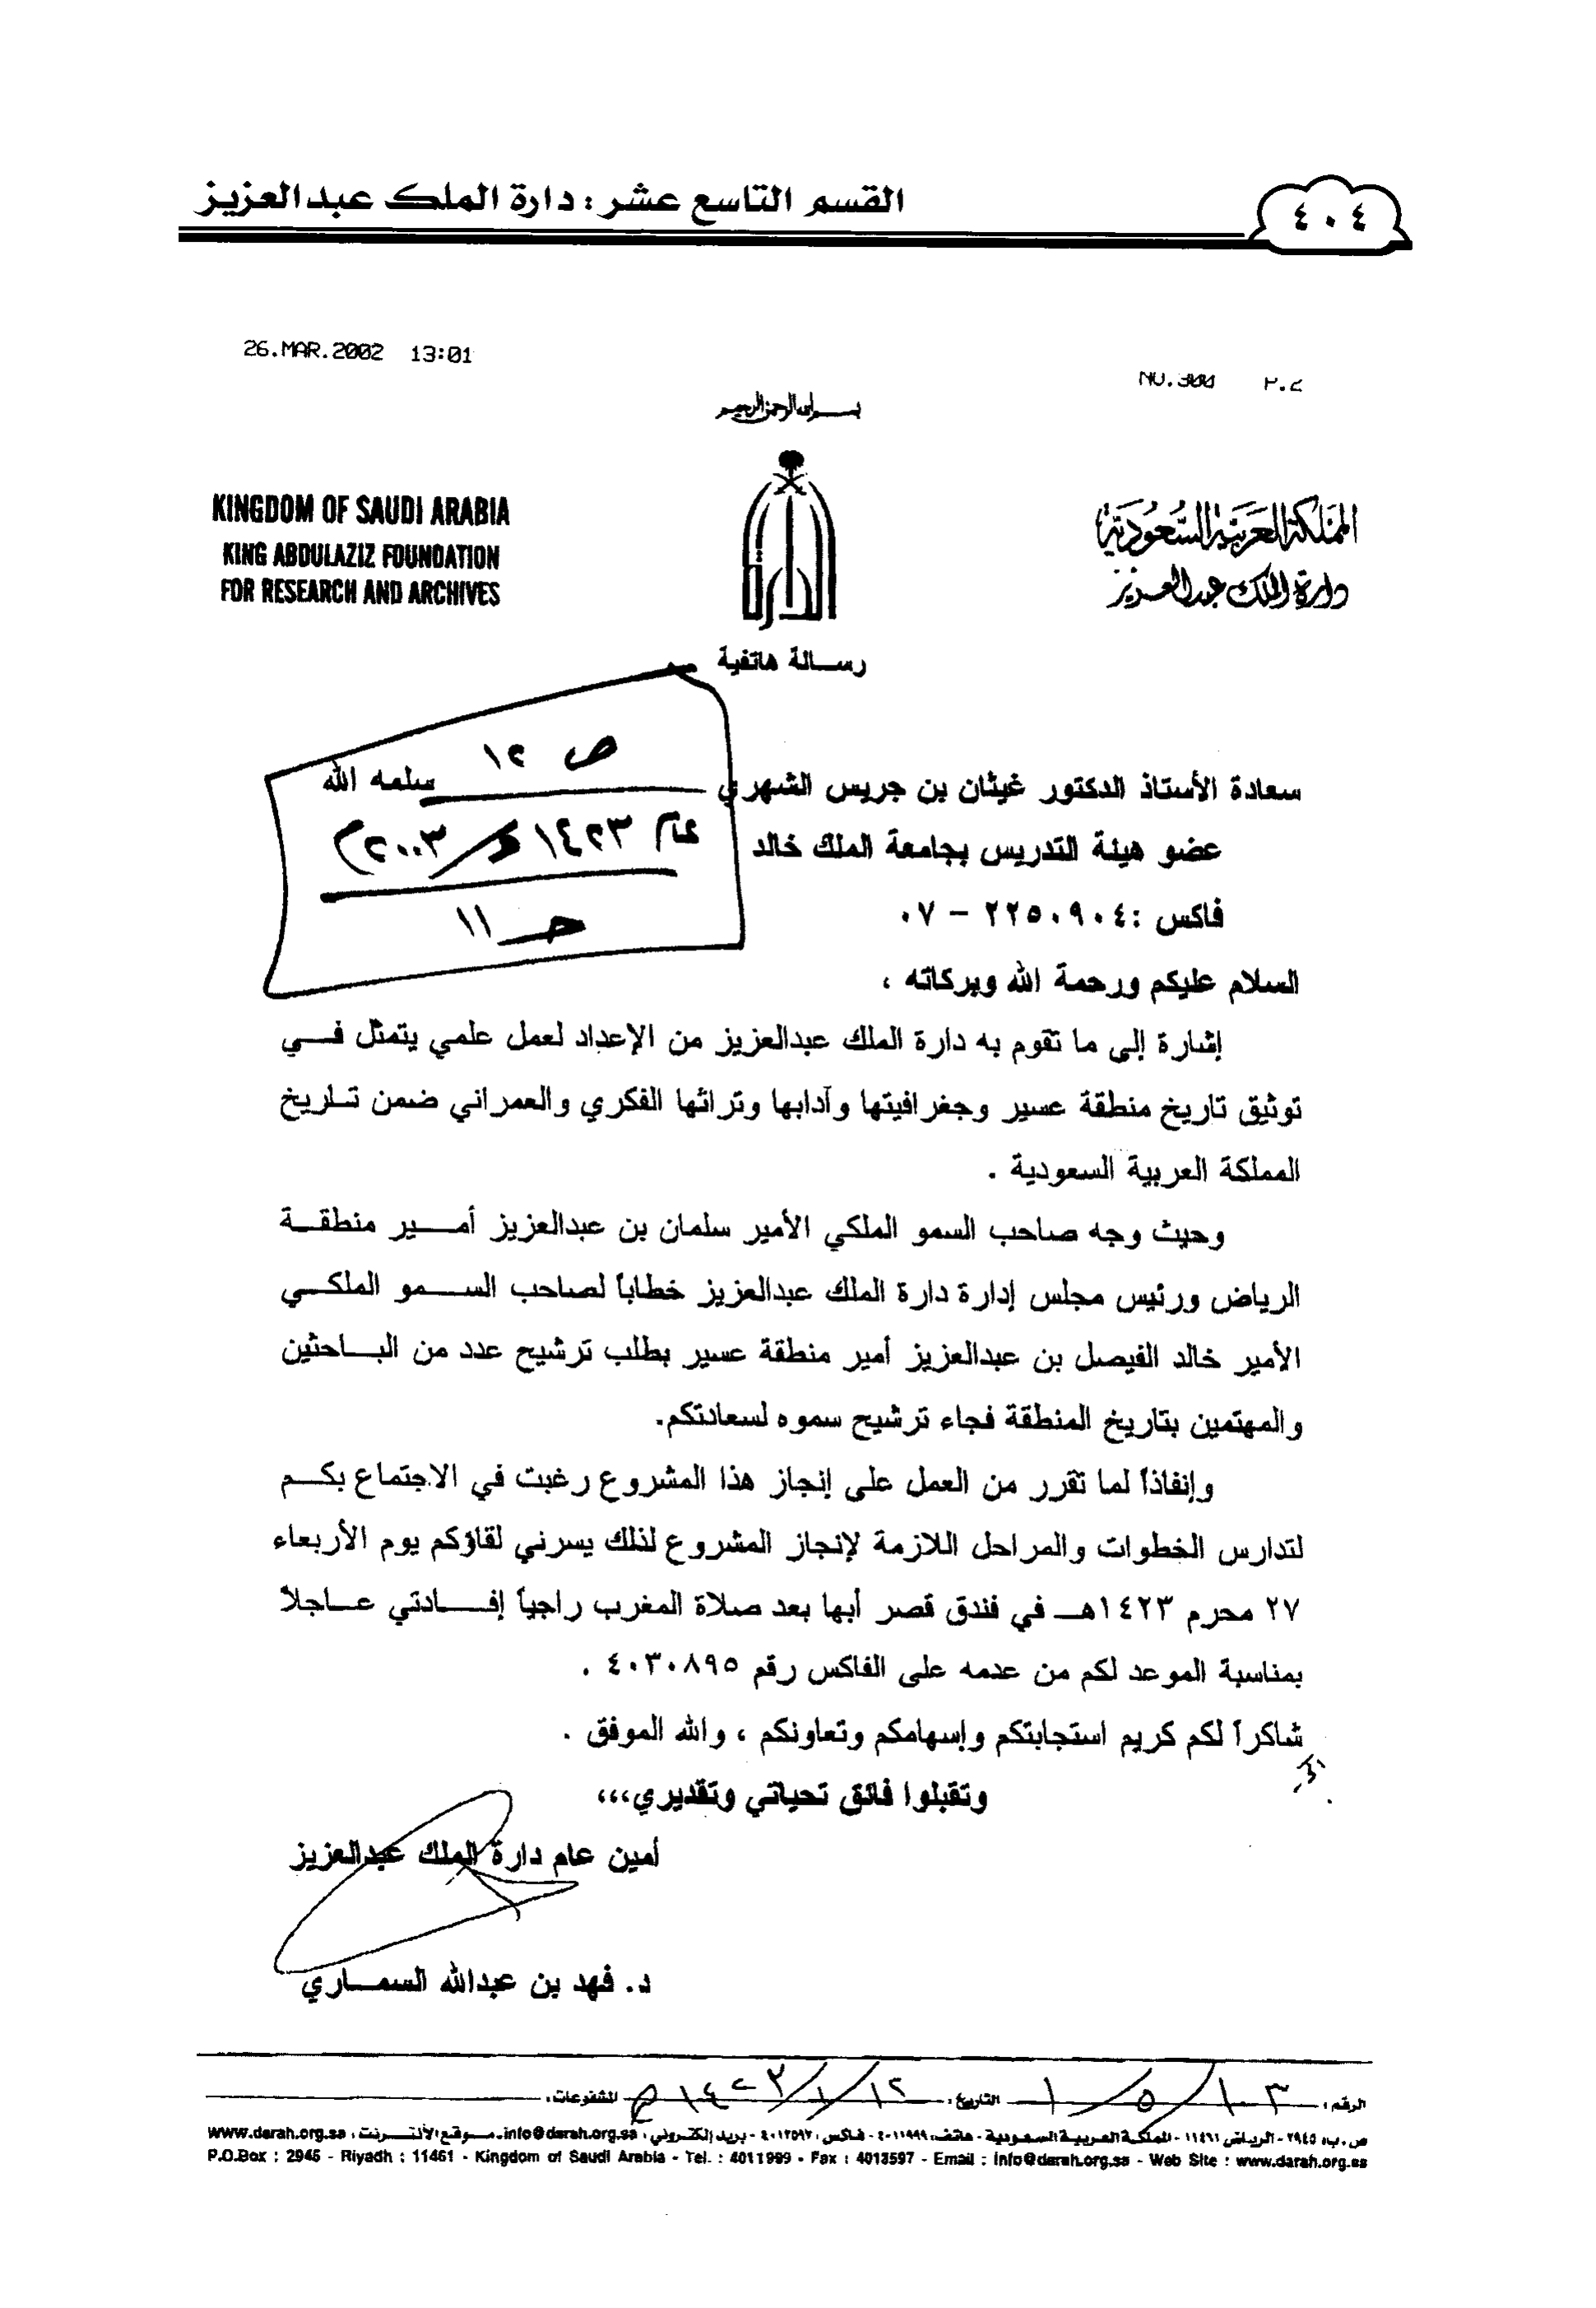 القسم التاسع عشر : دارة الملك عبدالعزيز
٤٠٤
26.MAR.2002 13:01
NO.300 P.2
بسم الله الرحمن الرحيم
KINGDOM OF SAUDI ARABIA
KING ABDULAZIZ FOUNDATION
FOR RESEARCH AND ARCHIVES
المملكة العربية السعودية
دارة الملك عبدالعزيز
رسـالة هاتفية
ص ١٢
عام ١٤٢٣هـ/٢٠٠٣م
جـ ١١
سعادة الأستاذ الدكتور غيثان بن جريس الشهري سلمه الله
عضو هيئة التدريس بجامعة الملك خالد
فاكس :٢٢٥٠٩٠٤ – ٠٧
السلام عليكم ورحمة الله وبركاته ،
إشارة إلى ما تقوم به دارة الملك عبدالعزيز من الإعداد لعمل علمي يتمثل فـــي
توثيق تاريخ منطقة عسير وجغرافيتها وآدابها وتراثها الفكري والعمراني ضمن تــاريخ
المملكة العربية السعودية .
وحيث وجه صاحب السمو الملكي الأمير سلمان بن عبدالعزيز أمـــير منطقـــة
الرياض ورئيس مجلس إدارة دارة الملك عبدالعزيز خطاباً لصاحب الســـمو الملكـــي
الأمير خالد الفيصل بن عبدالعزيز أمير منطقة عسير بطلب ترشيح عدد من البـــاحثين
والمهتمين بتاريخ المنطقة فجاء ترشيح سموه لسعادتكم.
وإنفاذاً لما تقرر من العمل على إنجاز هذا المشروع رغبت في الاجتماع بكـــم
لتدارس الخطوات والمراحل اللازمة لإنجاز المشروع لذلك يسرني لقاؤكم يوم الأربعاء
٢٧ محرم ١٤٢٣هــ في فندق قصر أبها بعد صلاة المغرب راجياً إفـــادتي عـــاجلاً
بمناسبة الموعد لكم من عدمه على الفاكس رقم ٤٠٣٠٨٩٥ .
شاكراً لكم كريم استجابتكم وإسهامكم وتعاونكم ، والله الموفق .
وتقبلوا فائق تحياتي وتقديري،،،
أمين عام دارة الملك عبدالعزيز
د. فهد بن عبدالله السمـــاري
الرقم : ١/٥/١٠٣ التاريخ : ١٢/١/١٤٢٣هـ المشفوعات :
ص.ب، ٢٩٤٥ - الرياض ١١٤٦١ - المملكة العربية السعودية - هاتف، ٤٠١١٩٩٩ - فاكس : ٤٠١٣٥٩٧ - بريد إلكتروني : info@darah.org.sa - موقع الأنترنت : www.darah.org.sa
P.O.Box : 2945 - Riyadh : 11461 - Kingdom of Saudi Arabia - Tel. : 4011999 - Fax : 4013597 - Email : info@darah.org.sa - Web Site : www.darah.org.sa